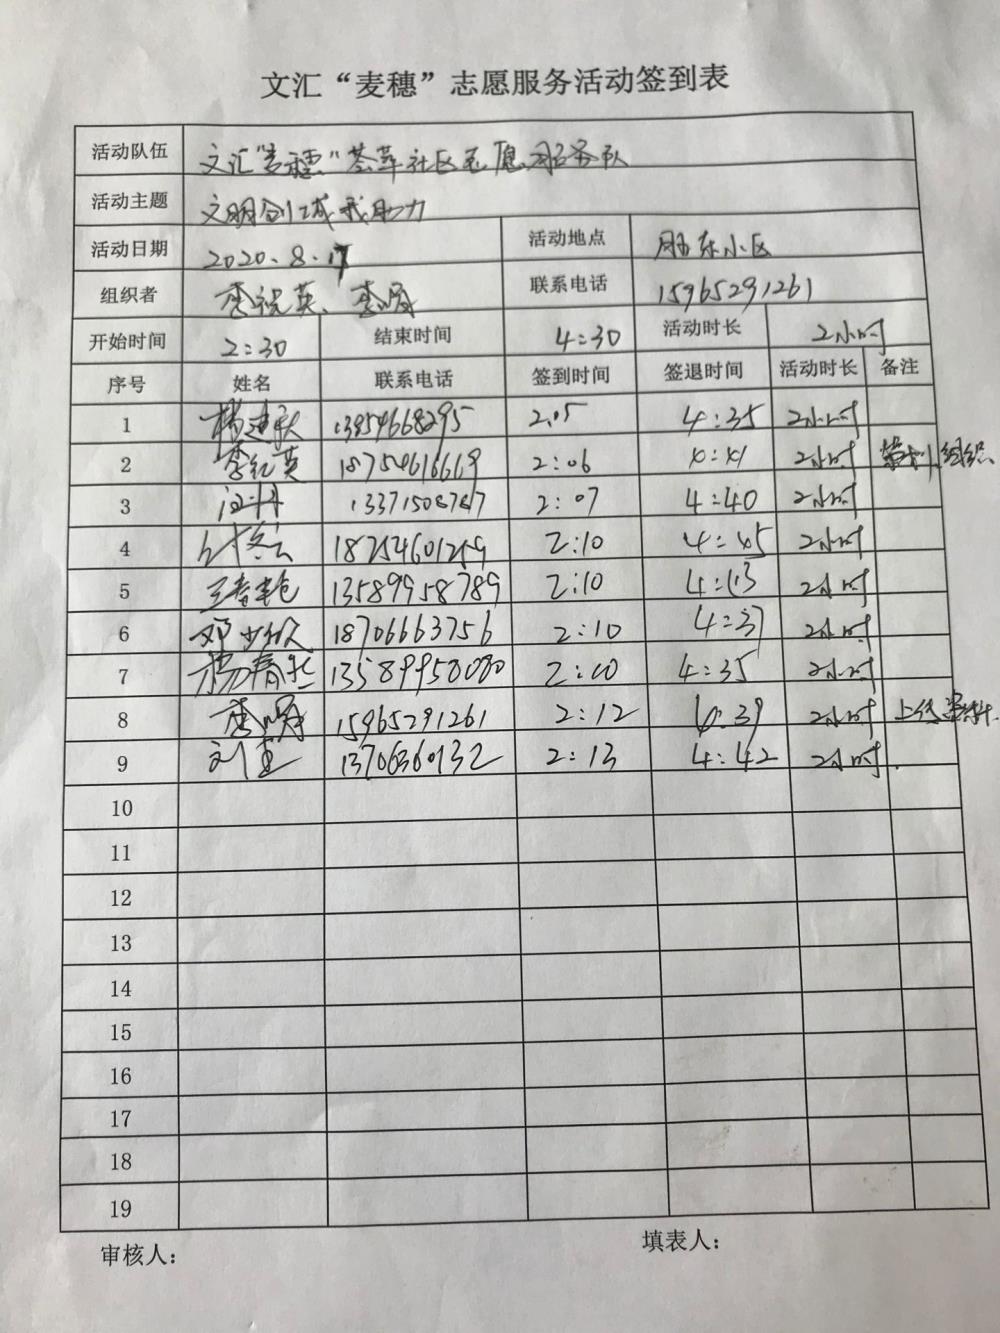 文汇“麦穗”志愿服务活动签到表
活动队伍 文汇“麦穗”荟萃社区志愿服务队
活动主题 文明创城我助力
活动日期 2020.8.17 活动地点 胜东小区
组织者 李祝英、李鸣 联系电话 15965291261
开始时间 2:30 结束时间 4:30 活动时长 2小时
序号 姓名 联系电话 签到时间 签退时间 活动时长 备注
1 13954668295 2.05 4:35 2小时
2 18754616669 2:06 2小时 组织
3 2:07 4:40 2小时
4 2:10 4:45 2小时
5 13589958789 2:10 2小时
6 邓 18706663756 2:10 4:37 2小时
7 杨春 13589958080 2:10 4:35 2小时
8 15965291261 2:12 2小时 上传
9 刘 13706360132 2:13 4:42 2小时.
10
11
12
13
14
15
16
17
18
19
审核人： 填表人：